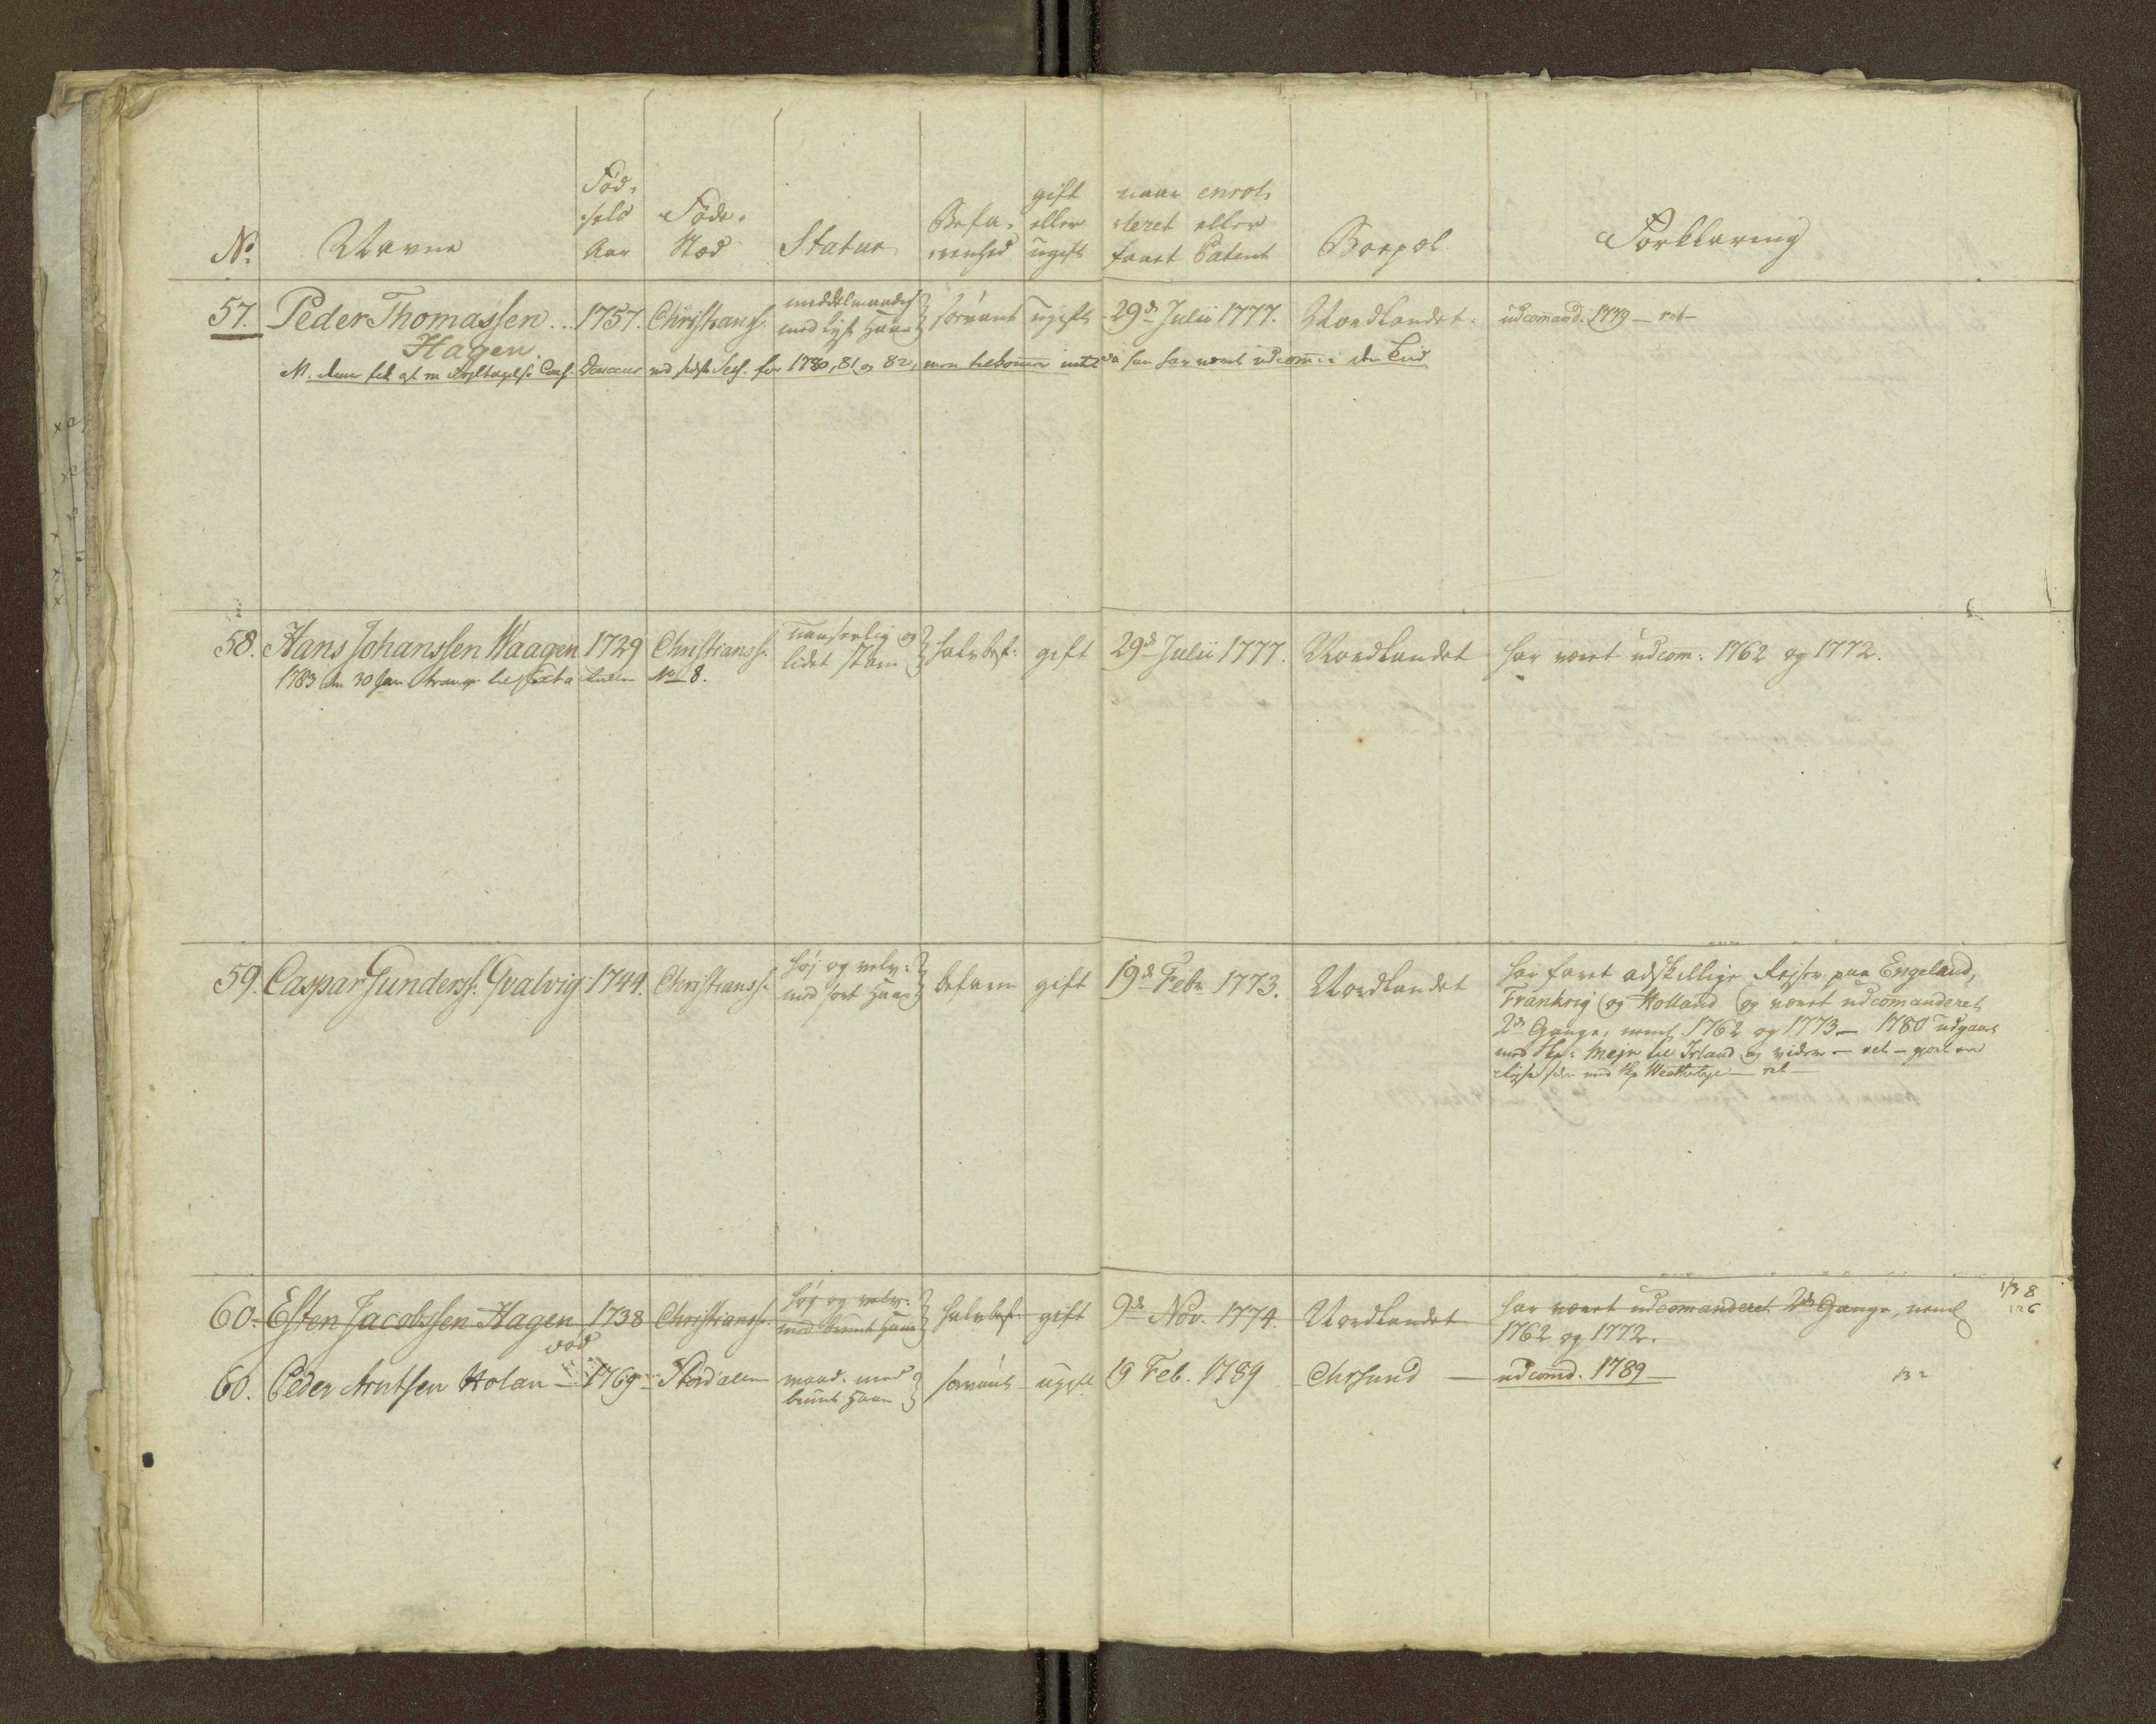 No. Navne Fød- sels Aar Føde- Stæd Statur Befa- renhed gift eller ugift naar enrol- leret eller faaet Patent Boepæl Forklaring
57. Peder Thomassen .. 1757. Christians. middelmaadig med lyst Haar søevant ugift 29de Julii 1777. Nordlandet. udcommand. 1779 — ret —
Hagen.
ved sidste Sess. for 1780, 81 og 82, da han har været udcom: i den Tiid
58. Hans Johanssen Waagen 1729 Christianss. uanseelig og lidet stam halvbef: gift 29de Julii 1777. Nordlandet har været udcom: 1762 og 1772.
1783 den 30 Jan. No 8.
59. Caspar Gunderss. Qvalvig 1744. Christianss. høj og velv: med sort Haar befaren gift 19de Febr 1773. Nordlandet har faret adskellige Rejser paa Engeland,
Frankrig og Holland og været udcommanderet
2de Gange, neml. 1762 og 1773 — 1780 udgaaet
med Skp: Mejn til Irland og videre — ret — gjort en
Rejse siden med Skp — ret —
60. Esten Jacobssen Hagen 1738 Christianss. høj og velv: med bruunt Haar halvbef. gift 9de Nov. 1774 Nordlandet har været udcommanderet 2de Gange, neml
1762 og 1772.
død
60. Peder Arntsen Holan — 1769 — Stordalen maad. med bruunt Haar søevant — ugift 19 Feb. 1789 Chrsund — udcomd. 1789 — 132